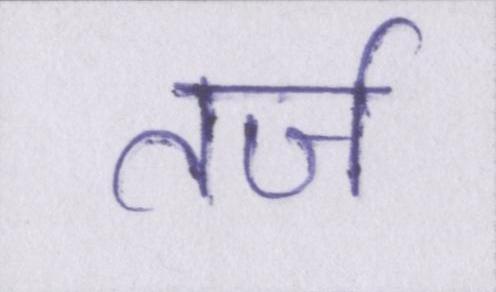 तर्ज